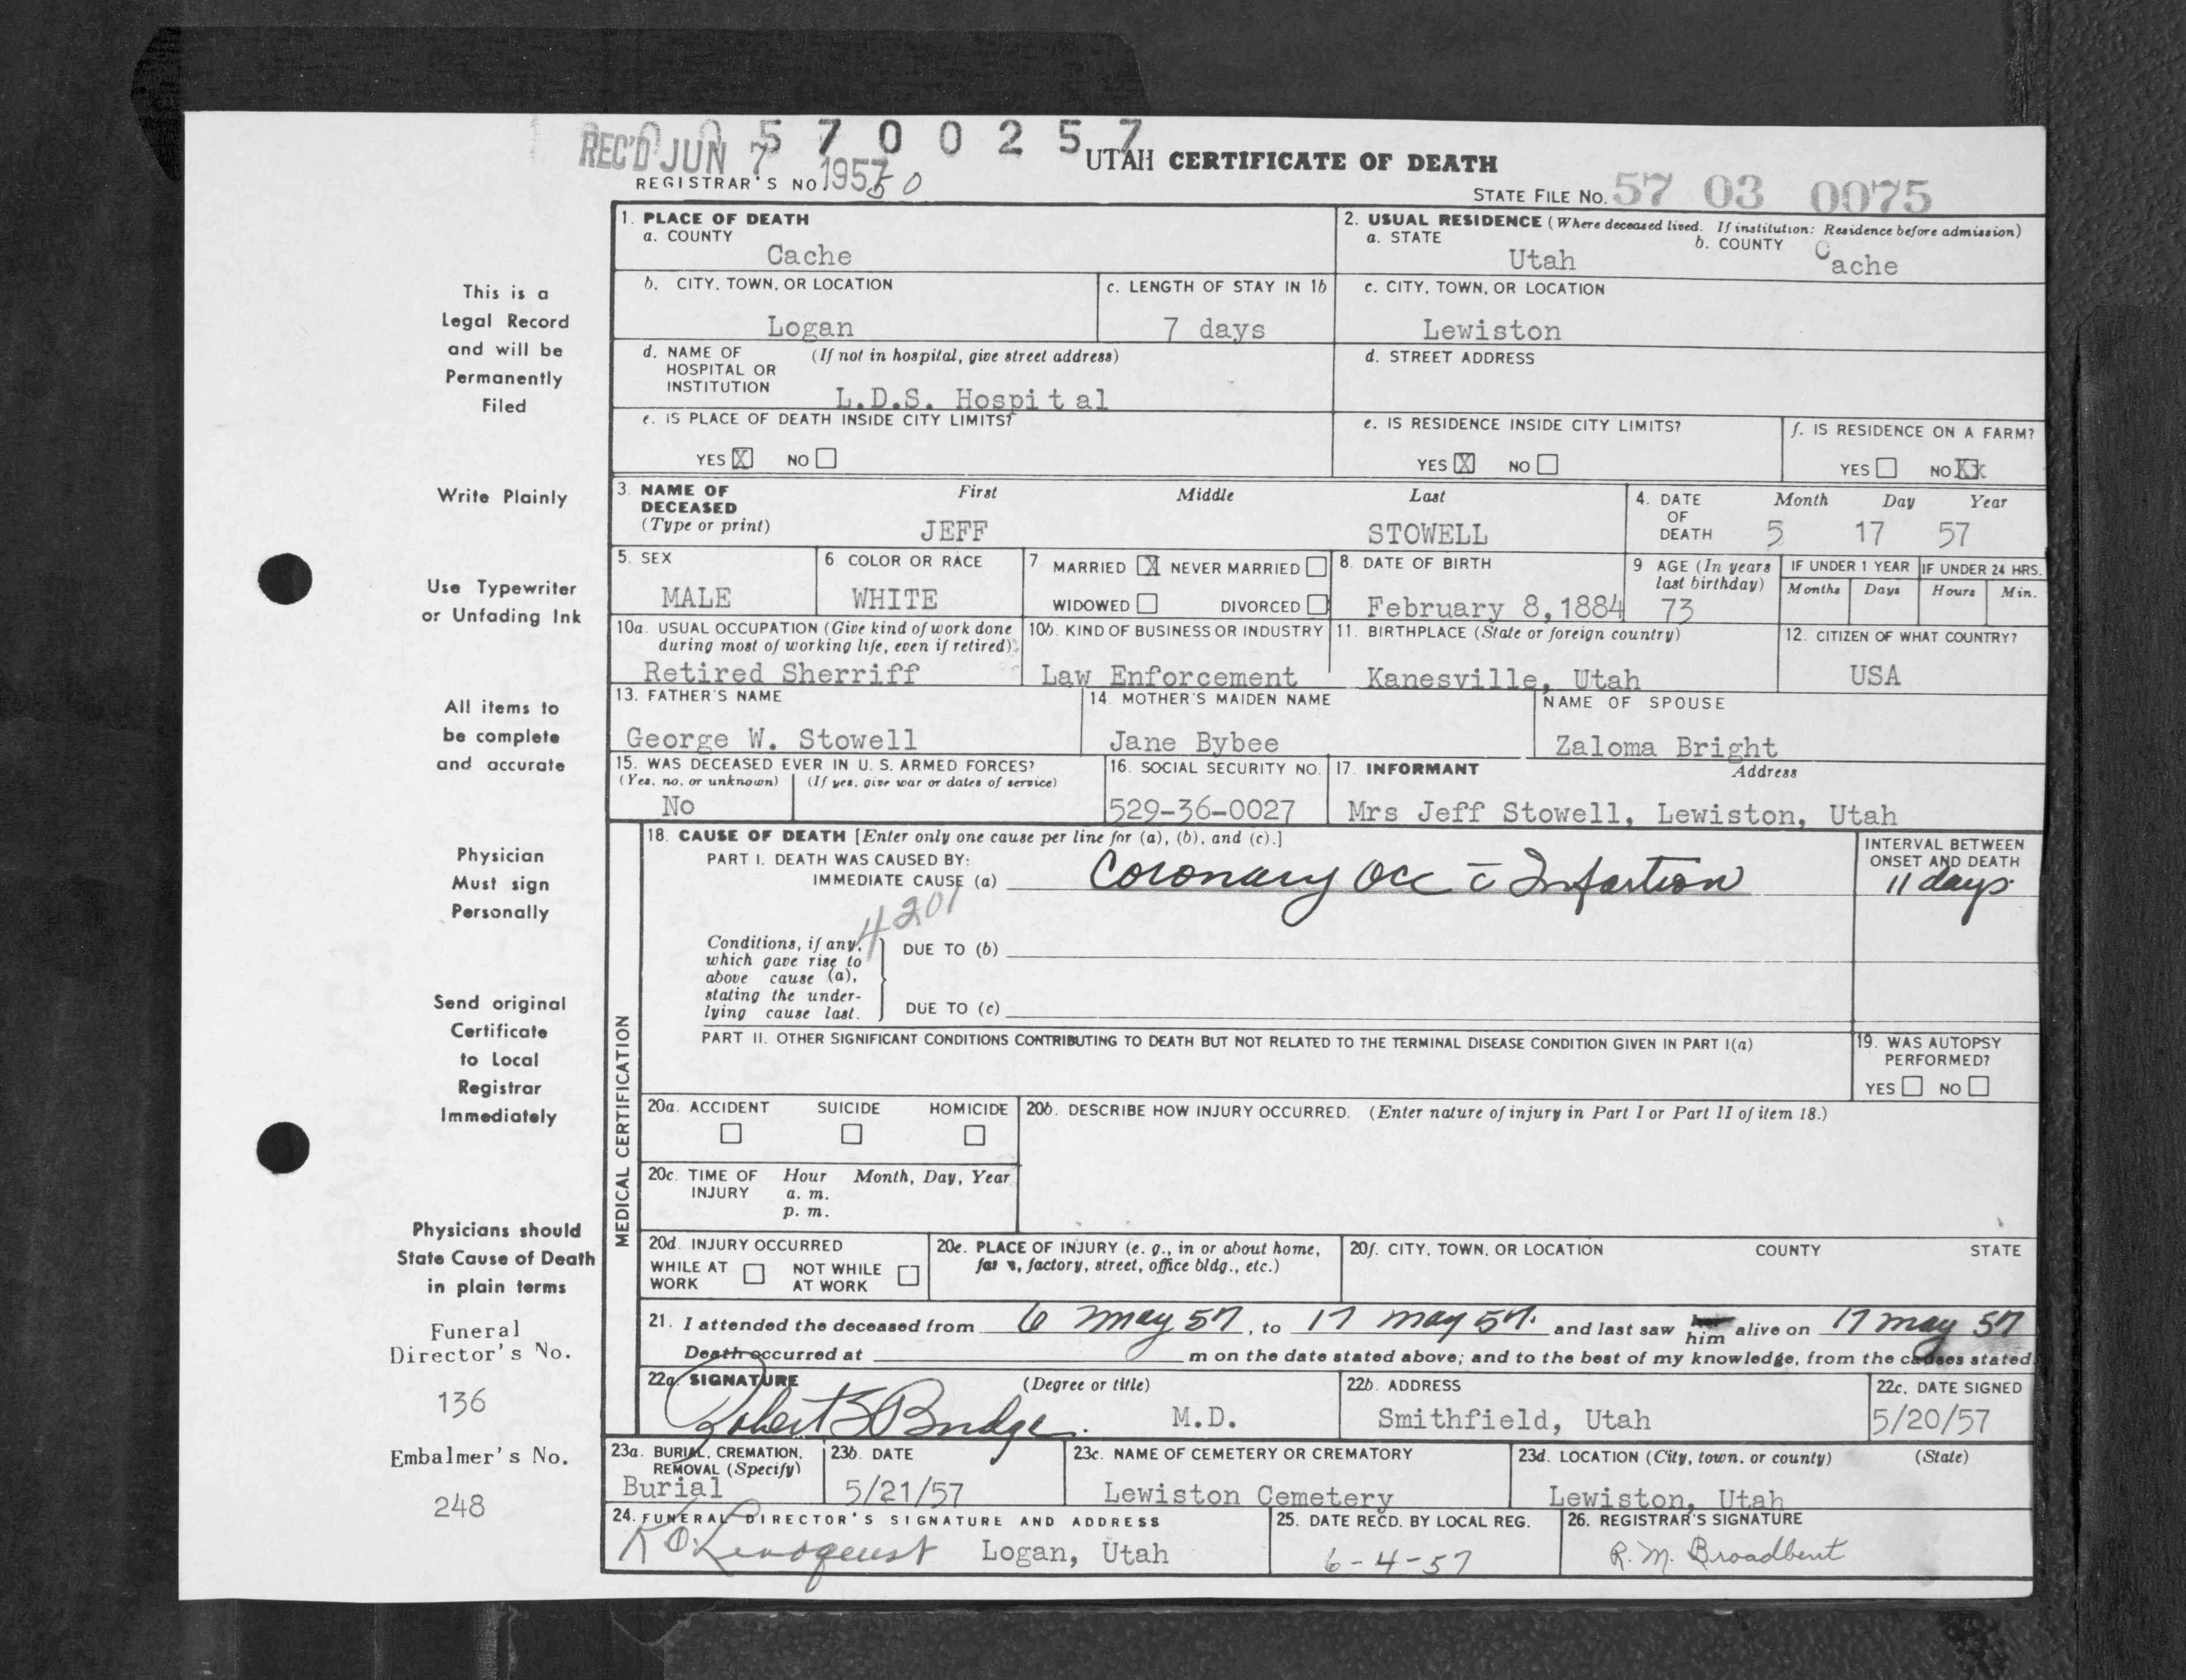 0 0 5 7 0 0 2 5 7
REC'D JUN 7 1957
UTAH CERTIFICATE OF DEATH
REGISTRAR'S NO. 150
STATE FILE NO. 57 03 0075
This is a
Legal Record
and will be
Permanently
Filed
Write Plainly
Use Typewriter
or Unfading Ink
All items to
be complete
and accurate
Physician
Must sign
Personally
Send original
Certificate
to Local
Registrar
Immediately
Physicians should
State Cause of Death
in plain terms
Funeral
Director's No.
136
Embalmer's No.
248
1. PLACE OF DEATH
a. COUNTY
Cache
2. USUAL RESIDENCE (Where deceased lived. If institution: Residence before admission)
a. STATE
Utah
b. COUNTY
Cache
b. CITY, TOWN, OR LOCATION
Logan
c. LENGTH OF STAY IN 1b
7 days
c. CITY, TOWN, OR LOCATION
Lewiston
d. NAME OF (If not in hospital, give street address)
HOSPITAL OR
INSTITUTION
L.D.S. Hospital
d. STREET ADDRESS
e. IS PLACE OF DEATH INSIDE CITY LIMITS?
YES X NO
e. IS RESIDENCE INSIDE CITY LIMITS?
YES X NO
f. IS RESIDENCE ON A FARM?
YES NO Xx
3. NAME OF First Middle Last
DECEASED
(Type or print)
JEFF STOWELL
4. DATE Month Day Year
OF
DEATH 5 17 57
5. SEX
MALE
6 COLOR OR RACE
WHITE
7 MARRIED X NEVER MARRIED
WIDOWED DIVORCED
8. DATE OF BIRTH
February 8, 1884
9 AGE (In years
last birthday)
73
IF UNDER 1 YEAR IF UNDER 24 HRS.
Months Days Hours Min.
10a. USUAL OCCUPATION (Give kind of work done
during most of working life, even if retired)
Retired Sherriff
10b. KIND OF BUSINESS OR INDUSTRY
Law Enforcement
11. BIRTHPLACE (State or foreign country)
Kanesville, Utah
12. CITIZEN OF WHAT COUNTRY?
USA
13. FATHER'S NAME
George W. Stowell
14. MOTHER'S MAIDEN NAME
Jane Bybee
NAME OF SPOUSE
Zaloma Bright
15. WAS DECEASED EVER IN U. S. ARMED FORCES?
(Yes, no, or unknown) (If yes, give war or dates of service)
No
16. SOCIAL SECURITY NO.
529-36-0027
17. INFORMANT Address
Mrs Jeff Stowell, Lewiston, Utah
MEDICAL CERTIFICATION
18. CAUSE OF DEATH [Enter only one cause per line for (a), (b), and (c).]
PART I. DEATH WAS CAUSED BY:
IMMEDIATE CAUSE (a) Coronary Occ c̄ Infartion
INTERVAL BETWEEN
ONSET AND DEATH
11 days.
4201
Conditions, if any,
which gave rise to
above cause (a),
stating the under-
lying cause last.
DUE TO (b)
DUE TO (c)
PART II. OTHER SIGNIFICANT CONDITIONS CONTRIBUTING TO DEATH BUT NOT RELATED TO THE TERMINAL DISEASE CONDITION GIVEN IN PART I(a)
19. WAS AUTOPSY
PERFORMED?
YES NO
20a. ACCIDENT SUICIDE HOMICIDE
20b. DESCRIBE HOW INJURY OCCURRED. (Enter nature of injury in Part I or Part II of item 18.)
20c. TIME OF Hour Month, Day, Year
INJURY a. m.
p. m.
20d. INJURY OCCURRED
WHILE AT NOT WHILE
WORK AT WORK
20e. PLACE OF INJURY (e. g., in or about home,
farm, factory, street, office bldg., etc.)
20f. CITY, TOWN, OR LOCATION COUNTY STATE
21. I attended the deceased from 6 May 57, to 17 May 57. and last saw her him alive on 17 May 57
Death occurred at m on the date stated above; and to the best of my knowledge, from the causes stated.
22a. SIGNATURE (Degree or title)
Robert S Budge. M.D.
22b. ADDRESS
Smithfield, Utah
22c. DATE SIGNED
5/20/57
23a. BURIAL, CREMATION,
REMOVAL (Specify)
Burial
23b. DATE
5/21/57
23c. NAME OF CEMETERY OR CREMATORY
Lewiston Cemetery
23d. LOCATION (City, town, or county) (State)
Lewiston, Utah
24. FUNERAL DIRECTOR'S SIGNATURE AND ADDRESS
Lindquist Logan, Utah
25. DATE RECD. BY LOCAL REG.
6-4-57
26. REGISTRAR'S SIGNATURE
R. M. Broadbent